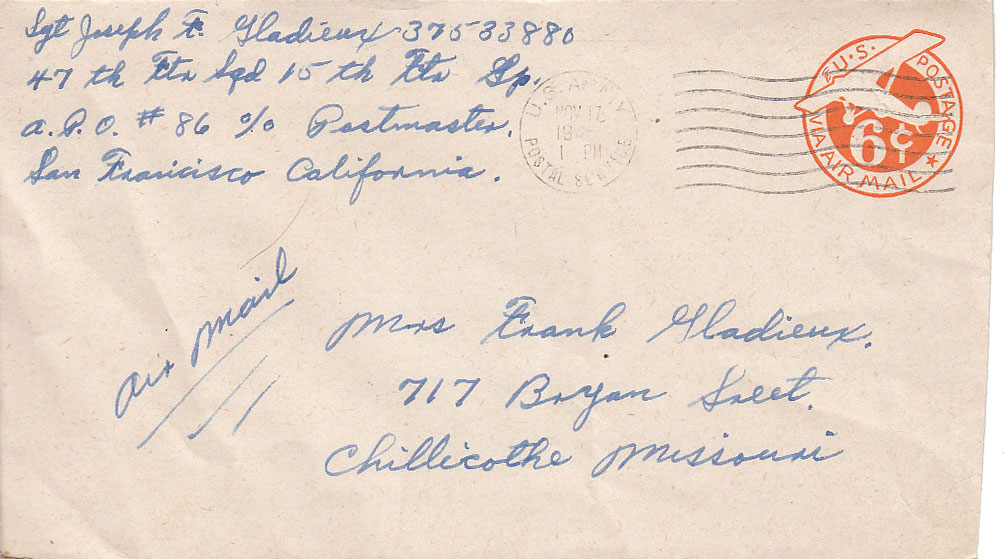 Sgt Joseph F. Gladieux 37533880
47 th Ftr Sqd 15 th Ftr Gp.
A.P.O. # 86 c/o Postmaster.
San Francisco California.
U.S. ARMY
NOV 17
19
1 PM
POSTAL SERVICE
U.S. POSTAGE
6¢
VIA AIR MAIL
Air Mail
Mrs Frank Gladieux.
717 Bryan Sreet.
Chillicothe Missouri